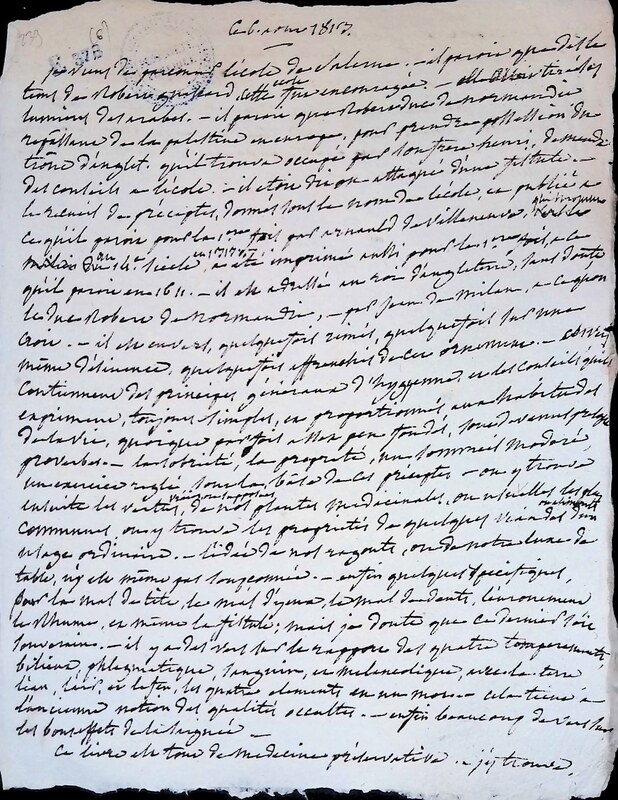 239 (6)
373
ce 6. aout 1817.
je viens de parcourir l'école de Salerne. - il paroit que dès le
tems de Robert guiscard, cette école fut encouragée. -
lumières des arabes. - il paroit que Robert duc de normandie
repassant de la palestine en europe, pour prendre possession du
trône d'anglet. qu'il trouva occupé par son frère henri, demanda
des conseils a l'école. - il étoit dit-on attaqué d'une fistule. -
le recueil de préceptes, donnés sous le nom de l'école, et publié a
ce qu'il paroit pour la 1ere fois par arnauld de Villeneuve,
du 14e siècle, a été imprimé aussi pour la 1ere fois, a ce
qu'il paroit en 1611. - il est adressé au roi d'angleterre, sans doute
le duc Robert de normandie, - par jean de milan, a ce qu'on
croit. - il est en vers, quelquefois rimés, quelquefois sur une
même désinence, quelquefois affranchis de cet ornement. - ces vers
contiennent des principes généraux d'hygyenne, et des conseils qu'ils
expriment, toujours simples, et proportionnés aux habitudes
de la vie, quoique parfois assez peu fondés, sont devenus presque
proverbes. - la sobriété, la propreté, un sommeil modéré,
un exercice réglé sont la base de ces préceptes - on y trouve
ensuite les vertus, de nos plantes médicinales, ou usuelles les plus
communes, on y trouve les propriétés de quelques viandes ou alimens d'un
usage ordinaire. - l'idée de nos ragouts, ou de notre luxe de
table, n'y est même pas soupçonnée. - enfin quelques spécifiques,
pour le mal de tête, le mal d'yeux, le mal de dents, l'enrouement
le Rhume, et même la fistule; mais je doute que ce dernier soit
souverain. - il y a des vers sur le rapport des quatre tempéraments,
bilieux, phlegmatique, sanguin, et melancolique, avec la terre
l'eau, l'air, et le feu, les quatre elements en un mot. - cela tient a
l'ancienne notion des qualités occultes. - enfin beaucoup de vers sur
les bons effets de la saignée -
Ce livre est tout de médecine préservative. - j'y trouve,